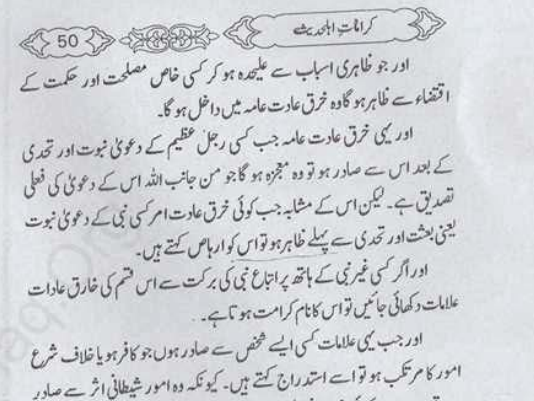 کراماتِ اہلحدیث
50
اور جو ظاہری اسباب سے علیحدہ ہو کر کسی خاص مصلحت اور حکمت کے
اقتضاء سے ظاہر ہوگا وہ خرق عادت عامہ میں داخل ہوگا۔
اور یہی خرق عادت عامہ جب کسی رجل عظیم کے دعویٰ نبوت اور تحدی
کے بعد اس سے صادر ہو تو وہ معجزہ ہوگا جو من جانب اللہ اس کے دعویٰ کی فعلی
تصدیق ہے۔ لیکن اس کے مشابہ جب کوئی خرق عادت امر کسی نبی کے دعویٰ نبوت
یعنی بعثت اور تحدی سے پہلے ظاہر ہو تو اس کو ارہاص کہتے ہیں۔
اور اگر کسی غیر نبی کے ہاتھ پر اتباع نبی کی برکت سے اس قسم کی خارق عادات
علامات دکھائی جائیں تو اس کا نام کرامت ہوتا ہے۔
اور جب یہی علامات کسی ایسے شخص سے صادر ہوں جو کافر ہو یا خلاف شرع
امور کا مرتکب ہو تو اسے استدراج کہتے ہیں۔ کیونکہ وہ امور شیطانی اثر سے صادر